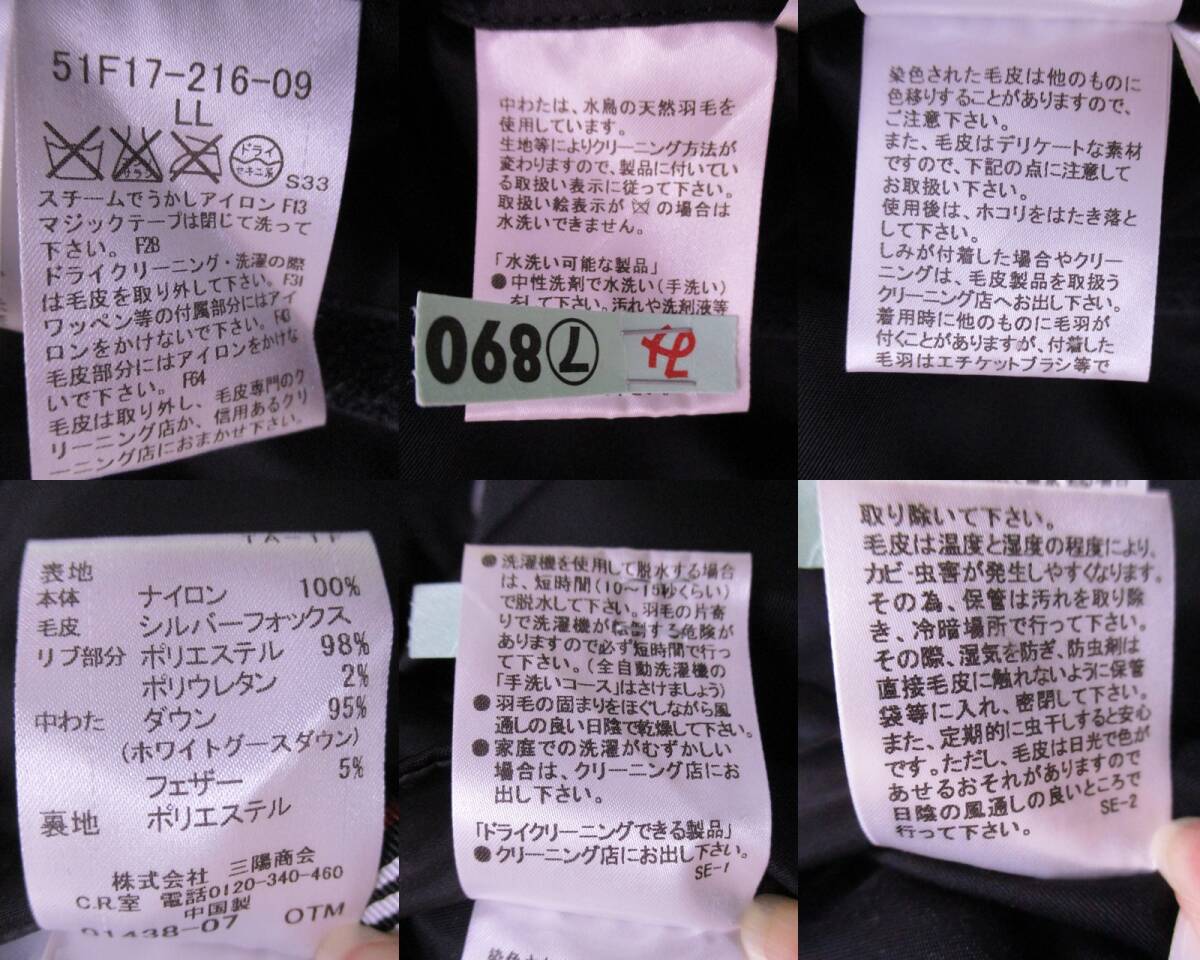 51F17-216-09
LL
サラシ
ドライ
セキユ系
S33
スチームでうかしアイロン F13
マジックテープは閉じて洗って
下さい。 F28
ドライクリーニング・洗濯の際
は毛皮を取り外して下さい。 F31
ワッペン等の付属部分にはアイ
ロンをかけないで下さい。
毛皮部分にはアイロンをかけな
いで下さい。 F64
毛皮は取り外し、毛皮専門のク
リーニング店か、信用あるクリ
ーニング店におまかせ下さい。
中わたは、水鳥の天然羽毛を
使用しています。
生地等によりクリーニング方法が
変わりますので、製品に付いてい
る取扱い表示に従って下さい。
取扱い絵表示が の場合は
水洗いできません。
「水洗い可能な製品」
●中性洗剤で水洗い(手洗い)
をして下さい。汚れや洗剤液等
068⑦
染色された毛皮は他のものに
色移りすることがありますので、
ご注意下さい。
また、毛皮はデリケートな素材
ですので、下記の点に注意して
お取扱い下さい。
使用後は、ホコリをはたき落と
して下さい。
しみが付着した場合やクリー
ニングは、毛皮製品を取扱う
クリーニング店へお出し下さい。
着用時に他のものに毛羽が
付くことがありますが、付着した
毛羽はエチケットブラシ等で
表地
本体 ナイロン 100%
毛皮 シルバーフォックス
リブ部分 ポリエステル 98%
ポリウレタン 2%
中わた ダウン 95%
(ホワイトグースダウン)
フェザー 5%
裏地 ポリエステル
株式会社 三陽商会
C.R室 電話0120-340-460
中国製
01438-07 OTM
●洗濯機を使用して脱水する場合
は、短時間(10〜15秒くらい)
で脱水して下さい。羽毛の片寄
りで洗濯機が転倒する危険が
ありますので必ず短時間で行っ
て下さい。(全自動洗濯機の
「手洗いコース」はさけましょう)
●羽毛の固まりをほぐしながら風
通しの良い日陰で乾燥して下さい。
●家庭での洗濯がむずかしい
場合は、クリーニング店にお
出し下さい。
「ドライクリーニングできる製品」
●クリーニング店にお出し下さい。
SE-1
取り除いて下さい。
毛皮は温度と湿度の程度により、
カビ・虫害が発生しやすくなります。
その為、保管は汚れを取り除
き、冷暗場所で行って下さい。
その際、湿気を防ぎ、防虫剤は
直接毛皮に触れないように保管
袋等に入れ、密閉して下さい。
また、定期的に虫干しすると安心
です。ただし、毛皮は日光で色が
あせるおそれがありますので
日陰の風通しの良いところで
行って下さい。
SE-2